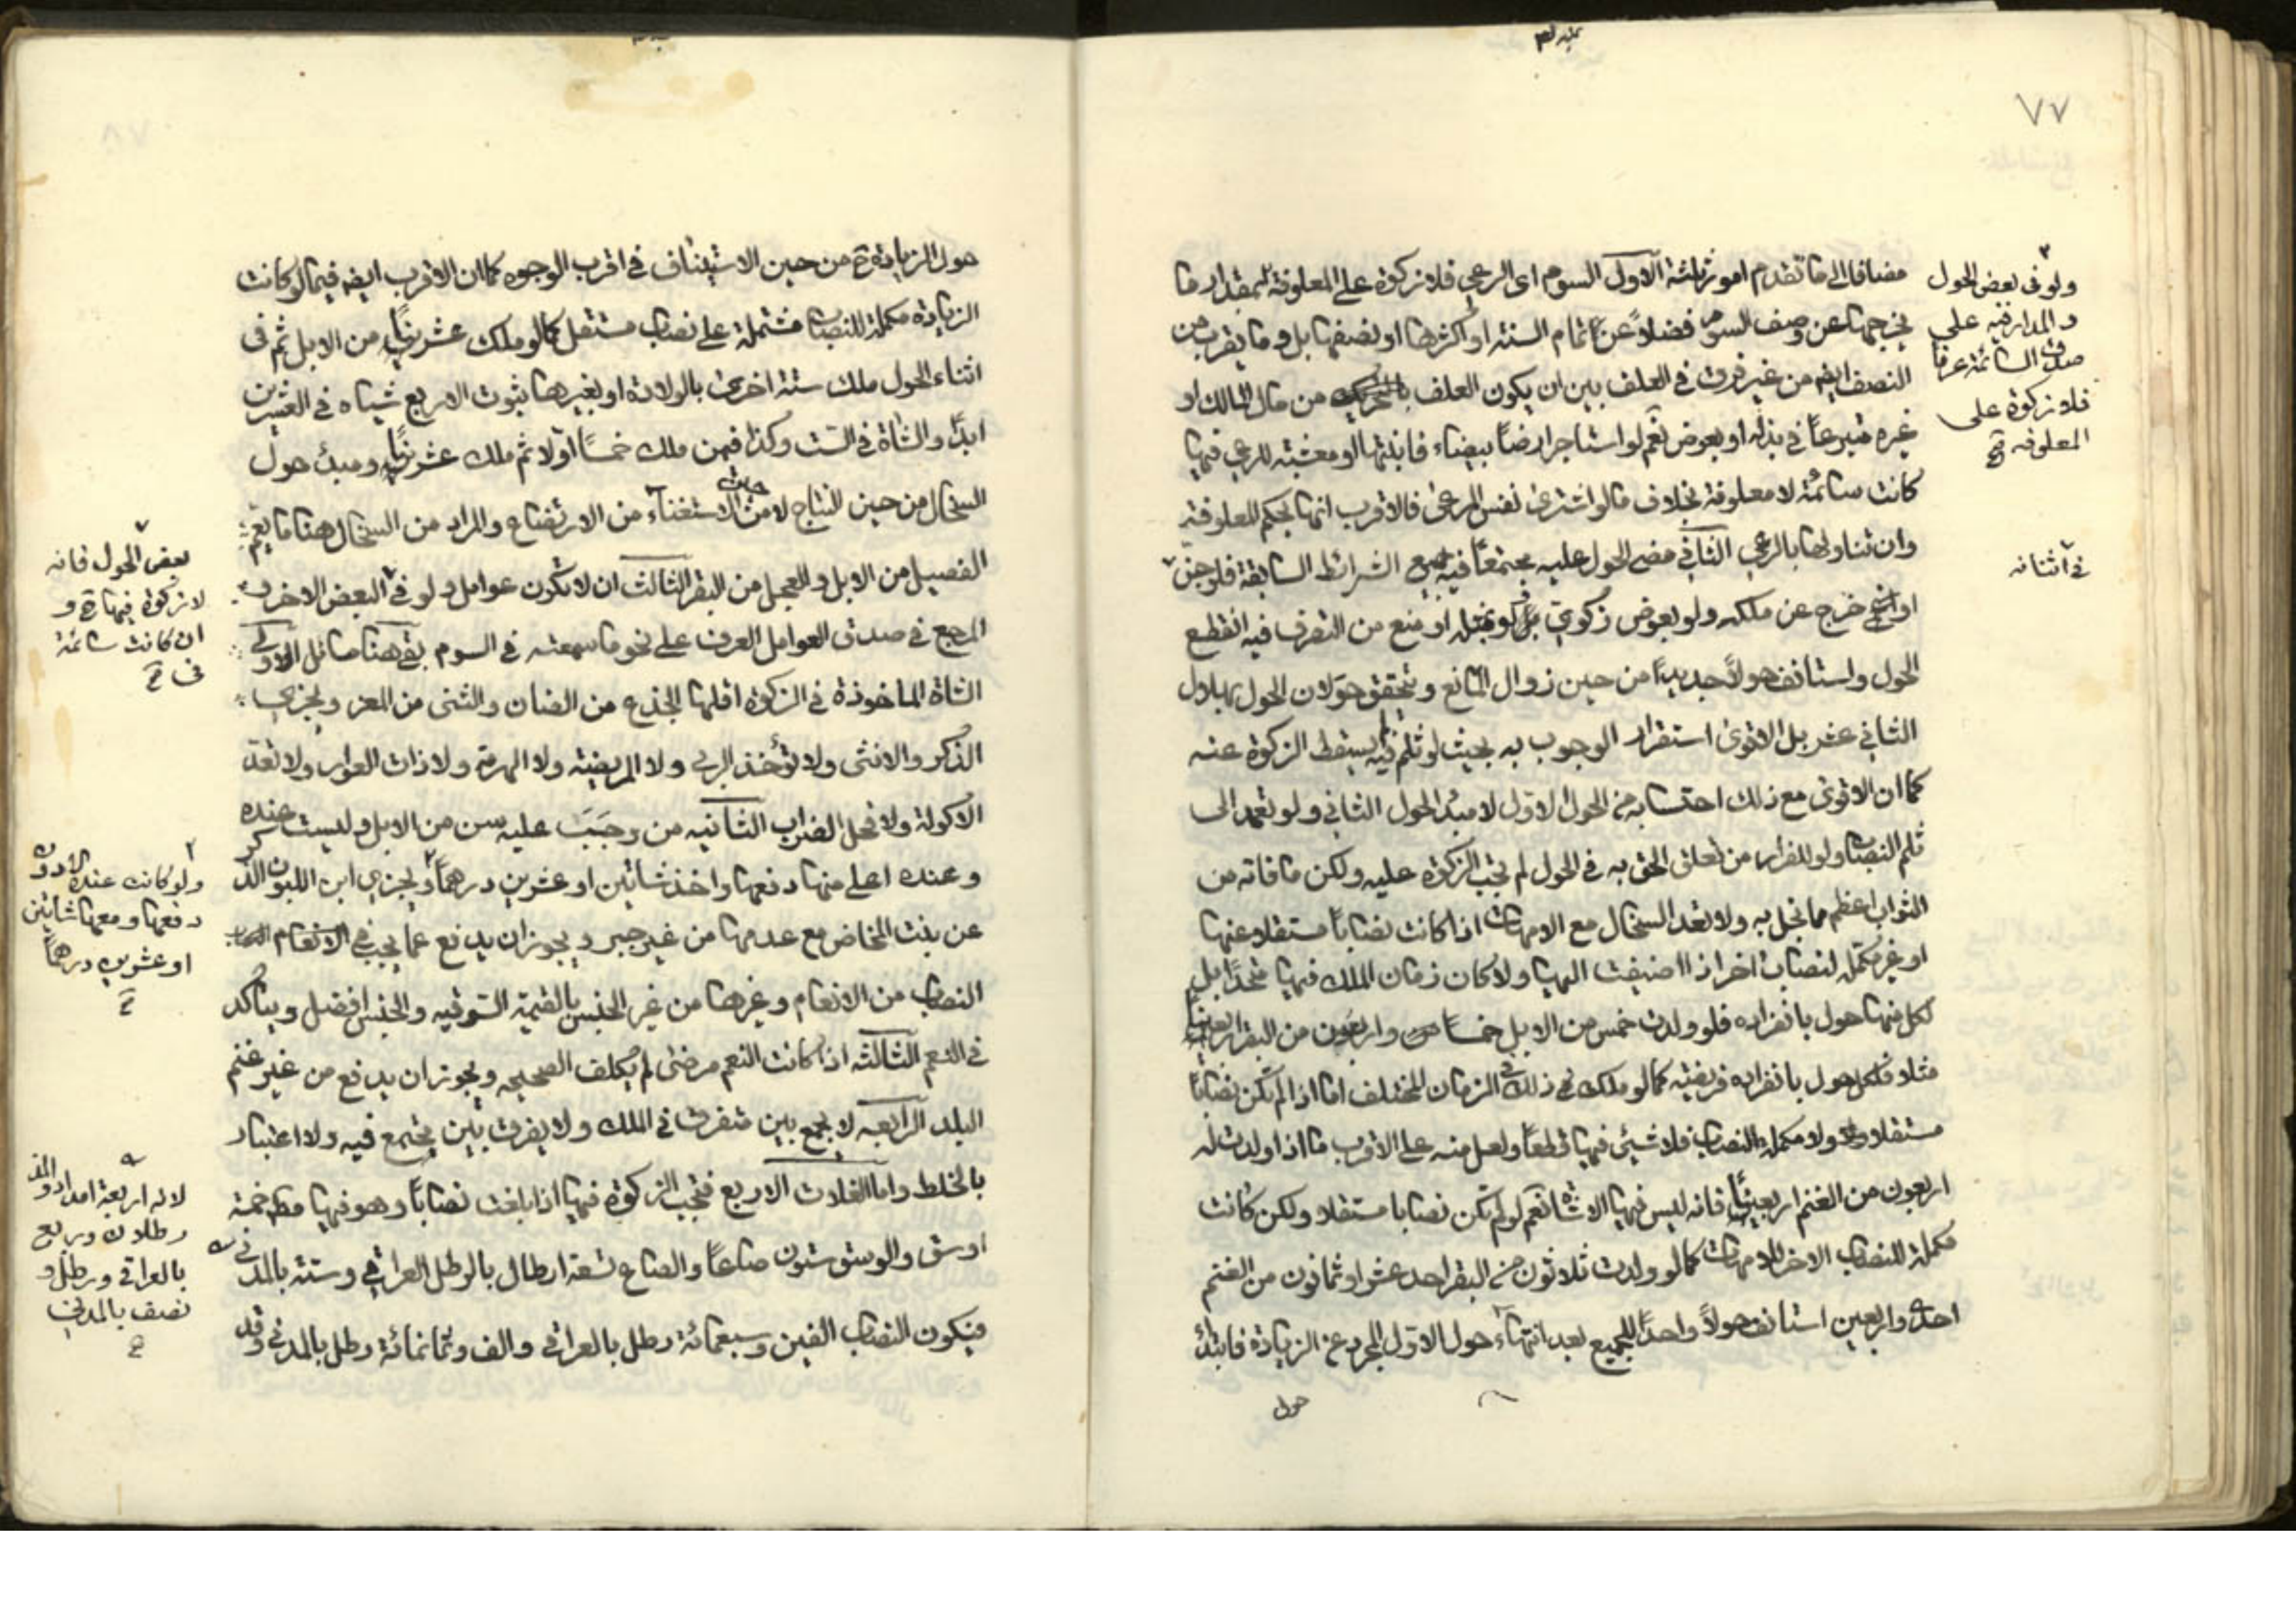 ٧٧
مضافا الى ما تقدم امور ثلثة الاول السوم اى الرعي فلا زكوة على المعلوفة بمقدار ما
يخرجها عن وصف السوم فضلاً عن تمام السنة او اكثرها او نصفها بل وما يقرب من
النصف ايضا من غير فرق في العلف بين ان يكون العلف من مال المالك او
غيره متبرعاً في بذله او بعوض نعم لو استاجر ارضاً بيضاء فانبتها او معشبة للرعي فيها
كانت سائمة لا معلوفة بخلاف ما لو اشترى نفس المرعى فالاقرب انها بحكم المعلوفة
وان تناولها بالرعي الثاني مضى الحول عليه مجتمعاً فيه جميع الشرائط السابقة فلو جن
او خرج عن ملكه ولو بعوض زكوي او منع من التصرف فيه انقطع
الحول واستانف حولاً جديداً من حين زوال المانع و يتحقق حولان الحول بهلال
الثاني عشر بل الاقوى استقرار الوجوب به بحيث لو ثلم فيه لم يسقط الزكوة عنه
كما ان الاقوى مع ذلك احتسابه من الحول الاول لا مبدء الحول الثاني ولو تعمد الى
ثلم النصاب ولو للفرار من تعلق الحق به في الحول لم تجب الزكوة عليه ولكن ما فاته من
الثواب اعظم مما بخل به ولا تعد السخال مع الامهات اذا كانت نصاباً مستقلا عنها
او غير مكمل لنصاب اخر اذا اضيفت اليها ولا كان زمان الملك فيها متحداً بل
لكل منها حول بانفراده فلو ولدت خمس من الابل خمساً واربعون من البقر اربعين
مثلا فلكل حول بانفراده فريضته كما لو ملك ذلك في الزمان المختلف اما اذا لم تكن نصاباً
مستقلا ولا مكملة للنصاب فلا شيئ فيها قطعاً ولعل منه على الاقرب ما اذا ولدت له
اربعون من الغنم اربعين فانه ليس فيها الا شاة نعم لو لم تكن نصابا مستقلا ولكن كانت
مكملة للنصاب الاخر للامهات كما لو ولدت ثلاثون من البقر احد عشر او ثمانون من الغنم
احد واربعين استانف حولاً واحداً للجميع بعد انتهاء حول الاول المجرد عن الزيادة فابتداء
حول
ولو في بعض الحول
والمدار فيه على
صدق السائمة عرفا
فلا زكوة على
المعلوفة
في اثنائه
حول الزيادة ح من حين الاستيناف في اقرب الوجوه كما ان الاقرب ايضا فيما لو كانت
الزيادة مكملة للنصاب مشتملة على نصاب مستقل كما لو ملك عشرين من الابل ثم في
اثناء الحول ملك ستة اخرى بالولادة او بغيرها ثبوت الاربع شياه في العشرين
ابداً والشاة في الست وكذا فيمن ملك خمساً اولا ثم ملك عشرين ومبدء حول
السخال من حين النتاج لا من حين الاستغناء من الارتضاع والمراد من السخال هنا ما يعم
الفصيل من الابل والعجل من البقر الثالث ان لا تكون عوامل ولو في البعض الاخر و
المرجع في صدق العوامل العرف على نحو ما سمعته في السوم بقي هنا مسائل الاولى
الشاة الماخوذة في الزكوة اقلها الجذع من الضان والثنى من المعز و يجزي
الذكر والانثى ولا تؤخذ الربى ولا المريضة ولا الهرمة ولا ذات العوار ولا تعد
الاكولة ولا فحل الضراب الثانيه من وجبت عليه سن من الابل وليست عنده
وعنده اعلى منها دفعها واخذ شاتين او عشرين درهماً و يجزي ابن اللبون الذكر
عن بنت المخاض مع عدمها من غير جبر و يجوز ان يدفع عما يجب في
النصاب من الانعام وغيرها من غير الجنس بالقيمة السوقيه والجنس افضل ويتأكد
في النعم الثالثة اذا كانت النعم مرضى لم يكلف الصحيحه ويجوز ان يدفع من غير غنم
البلد الرابعه لا يجمع بين متفرق في الملك ولا يفرق بين مجتمع فيه ولا اعتبار
بالخلط واما الغلات الاربع فتجب الزكوة فيها اذا بلغت نصاباً وهو فيها خمسة
اوسق والوسق ستون صاعاً والصاع تسعة ارطال بالرطل العراقي وستة بالمدني
فيكون النصاب الفين وسبعمائة رطل بالعراقي والف وثمانمائة رطل بالمدني وقد
بعض الحول فانه
لا زكوة فيها ح و
ان كانت سائمة
ولو كانت عنده الادون
دفعها ومعها شاتين
او عشرين درهماً
لانه اربعة امداد والمد
رطلان وربع
بالعراقي ورطل و
نصف بالمدني